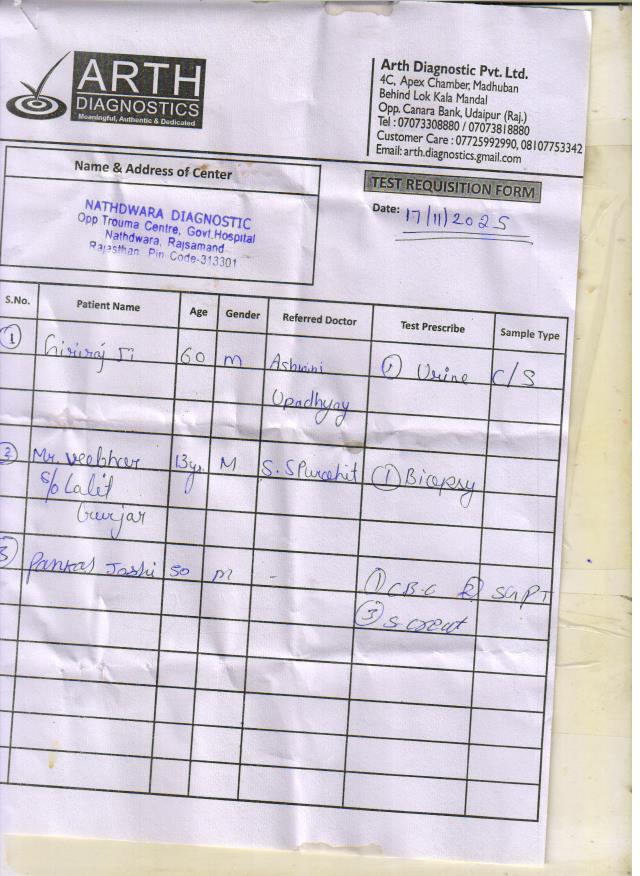 ARTH
DIAGNOSTICS
Meaningful, Authentic & Dedicated
Arth Diagnostic Pvt. Ltd.
4C, Apex Chamber, Madhuban
Behind Lok Kala Mandal
Opp. Canara Bank, Udaipur (Raj.)
Tel : 07073308880 / 07073818880
Customer Care : 07725992990, 08107753342
Email: arth.diagnostics.gmail.com
Name & Address of Center
NATHDWARA DIAGNOSTIC
Opp Trouma Centre, Govt.Hospital
Nathdwara, Rajsamand
Rajasthan Pin Code-313301
TEST REQUISITION FORM
Date: 17/11/2025
S.No. Patient Name Age Gender Referred Doctor Test Prescribe Sample Type
1 Giriraj Ji 60 m Ashwani ① Urine C/S
Upadhyay
2 Mr. 13 y. M S. S Purohit ① Biopsy
S/o Lalit
Gurjar
3 Pankaj Joshi 50 m - ① C.B.C ② SGPT
③ S. Creat